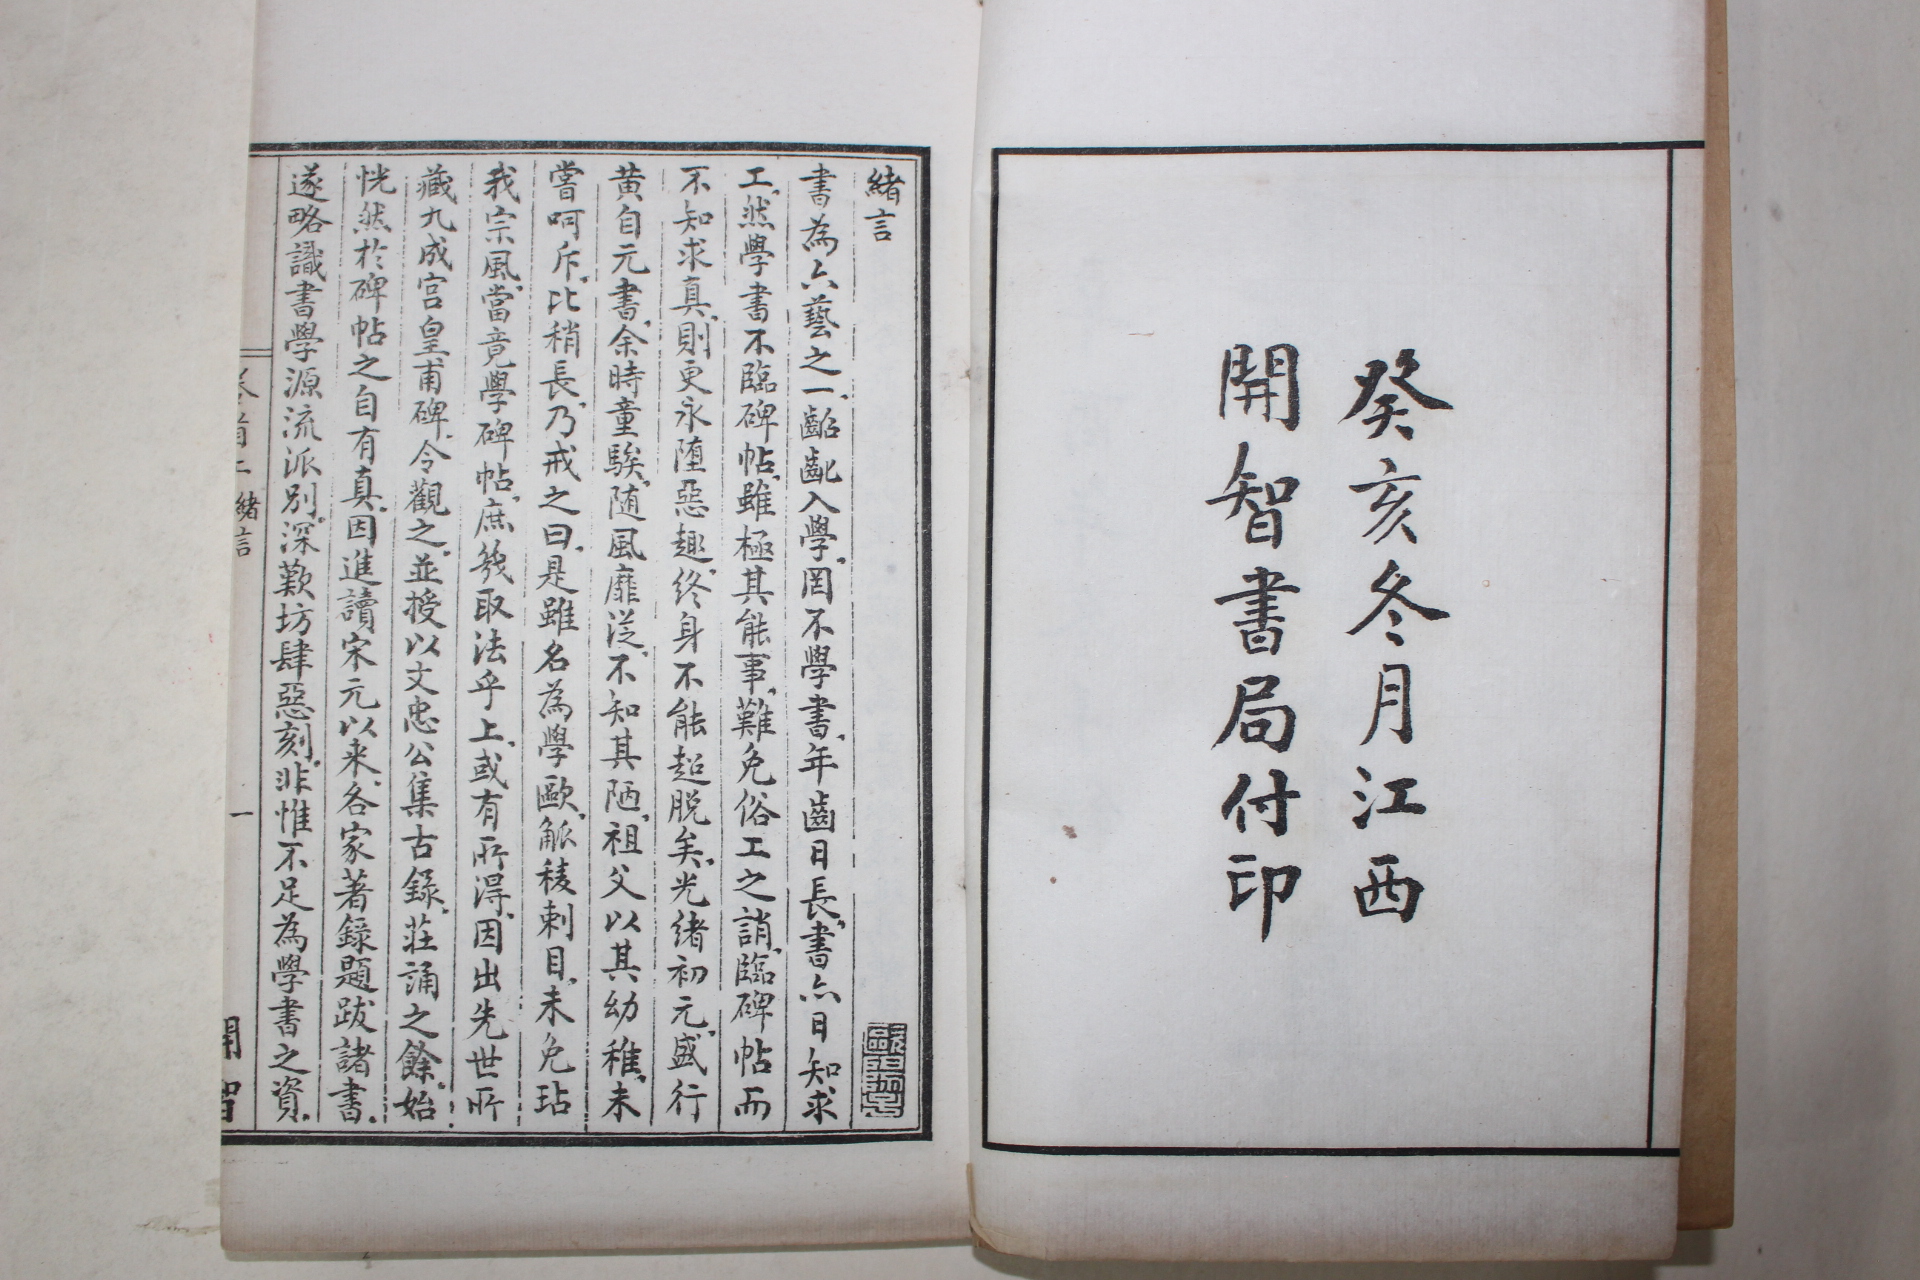 癸亥冬月江西
開智書局付印
緒言
書為六藝之一、齠齔入學、罔不學書、年齒日長、書亦日知求
工、然學書不臨碑帖、雖極其能事、難免俗工之誚、臨碑帖而
不知求真、則更永墮惡趣、終身不能超脫矣、光緒初元、盛行
黄自元書、余時童騃、随風靡從、不知其陋、祖父以其幼稚、未
嘗呵斥、比稍長、乃戒之曰、是雖名為學歐、觚稜刺目、未免玷
我宗風、當竟學碑帖、庶幾取法乎上、或有所得、因出先世所
藏九成宮皇甫碑、令觀之、並授以文忠公集古錄、莊誦之餘、始
恍然於碑帖之自有真、因進讀宋元以来、各家著録題跋諸書、
遂略識書學源流派别、深歎坊肆惡刻、非惟不足為學書之資、
卷首二 緒言
一
開智